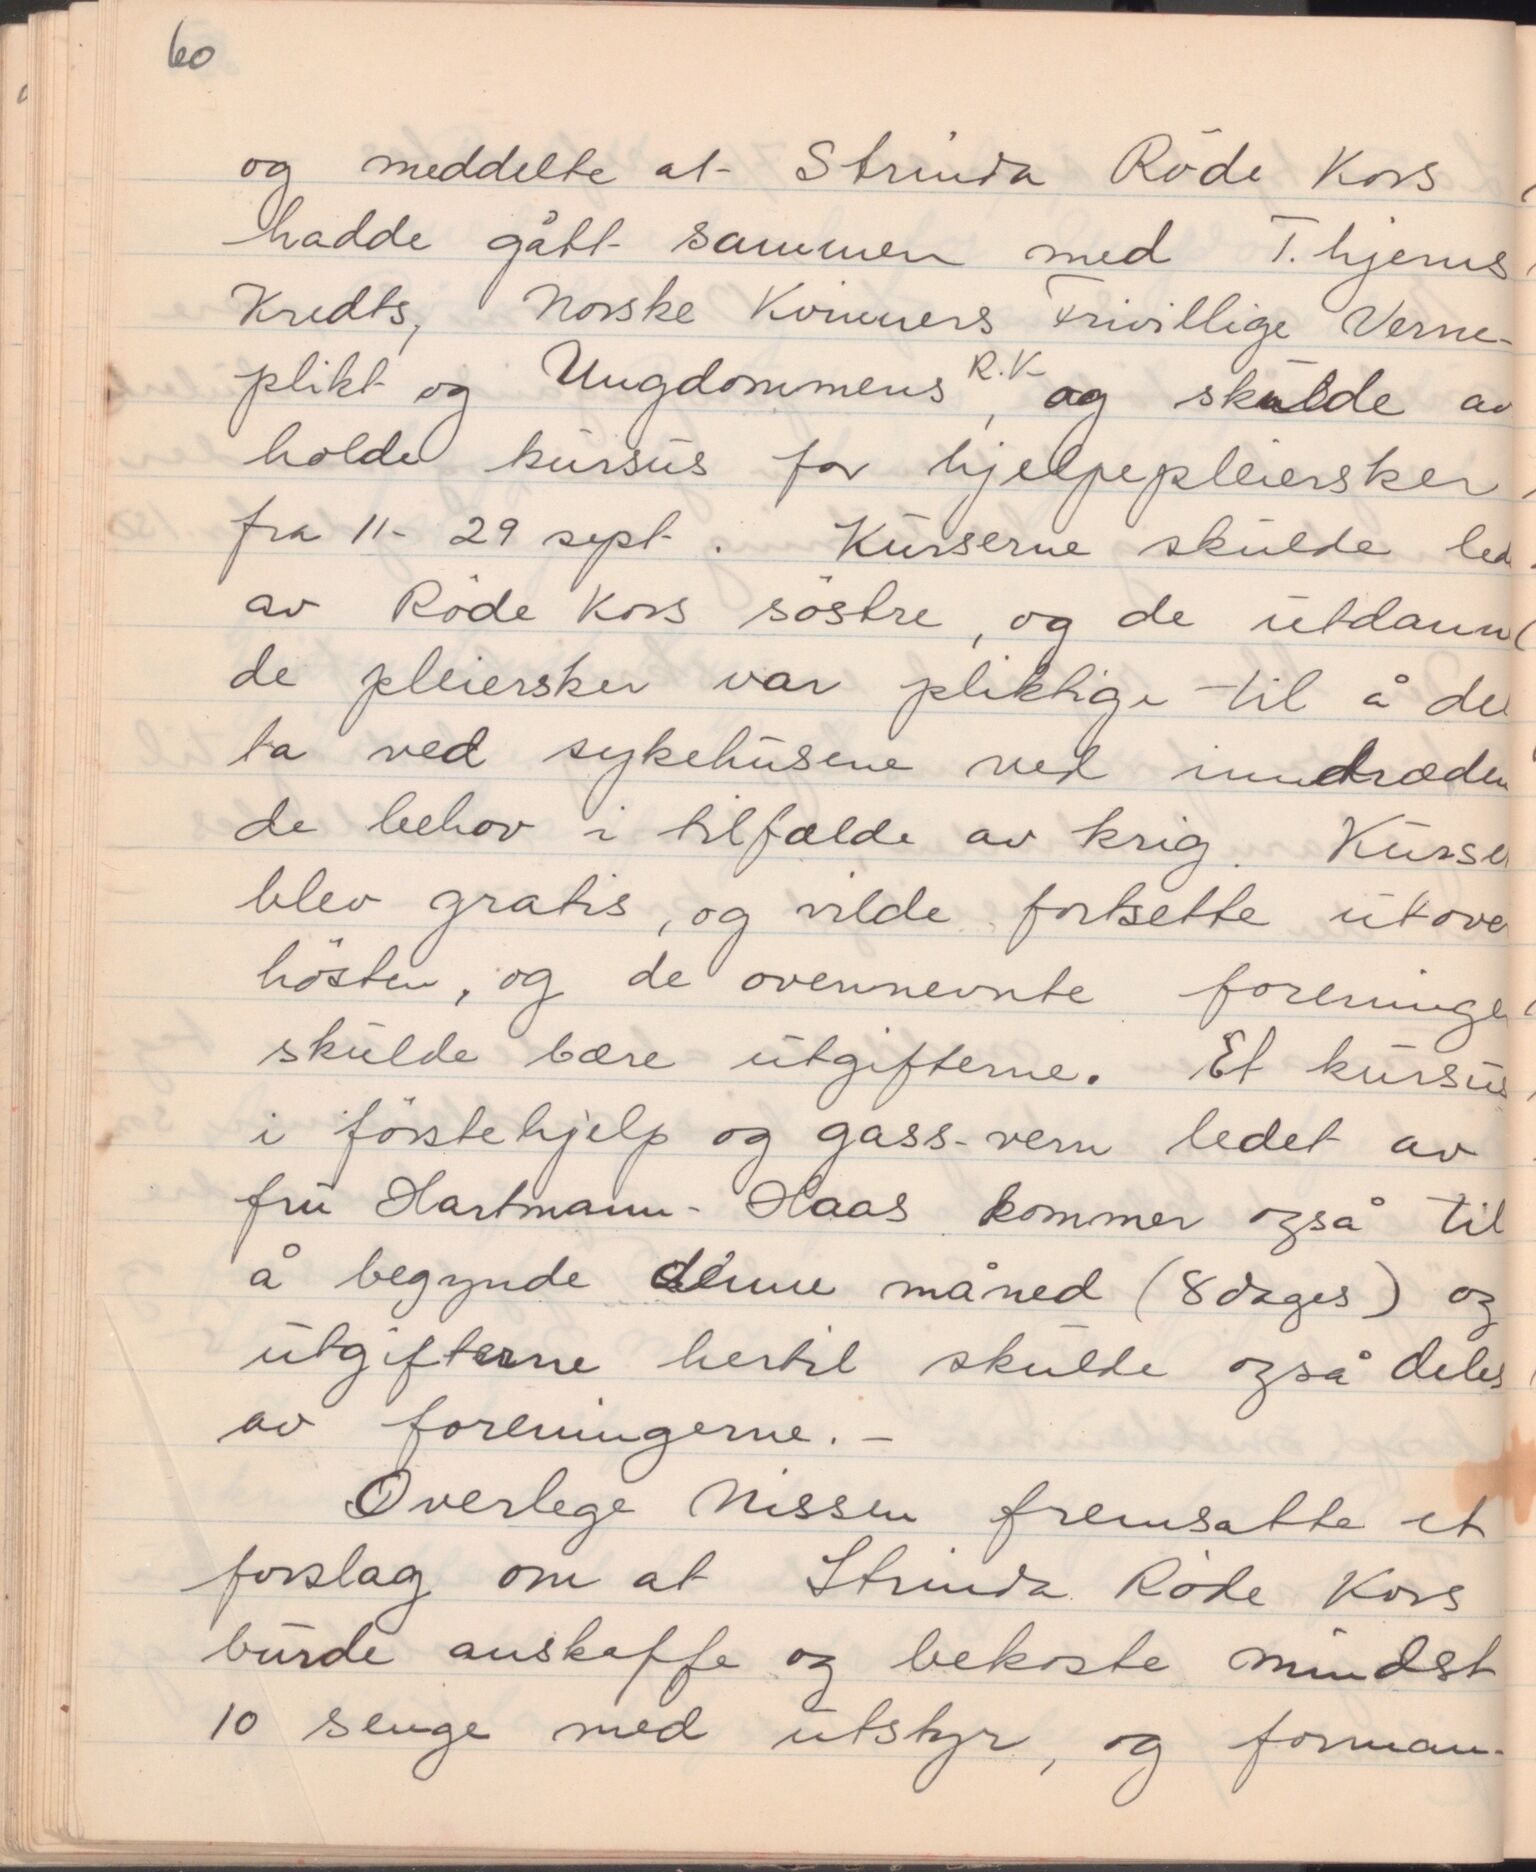 60
og meddelte at Strinda Röde Kors
hadde gått sammen med T.hjems
Kredts, Norske Kvinners Frivillige Verne-
plikt og Ungdommens R.K, og skulde av
holde kursus for hjelpepleiersker
fra 11- 29 sept. Kurserne skulde led
av Röde Kors söstre, og de utdann
de pleiersker var pliktige til å del
ta ved sykehusene ved inndræden
de behov i tilfælde av krig. Kurse
blev gratis, og vilde fortsette utove
hösten, og de ovennevnte foreninge
skulde bære utgifterne. Et kursus
i förstehjelp og gass-vern ledet av
fru Hartmann-Haas kommer også til
å begynde denne måned (8 dages) og
utgifterne hertil skulde også deles
av foreningerne. –
Overlege Nissen fremsatte et
forslag om at Strinda Röde Kors
burde anskaffe og bekoste mindst
10 senge med utstyr, og forman-